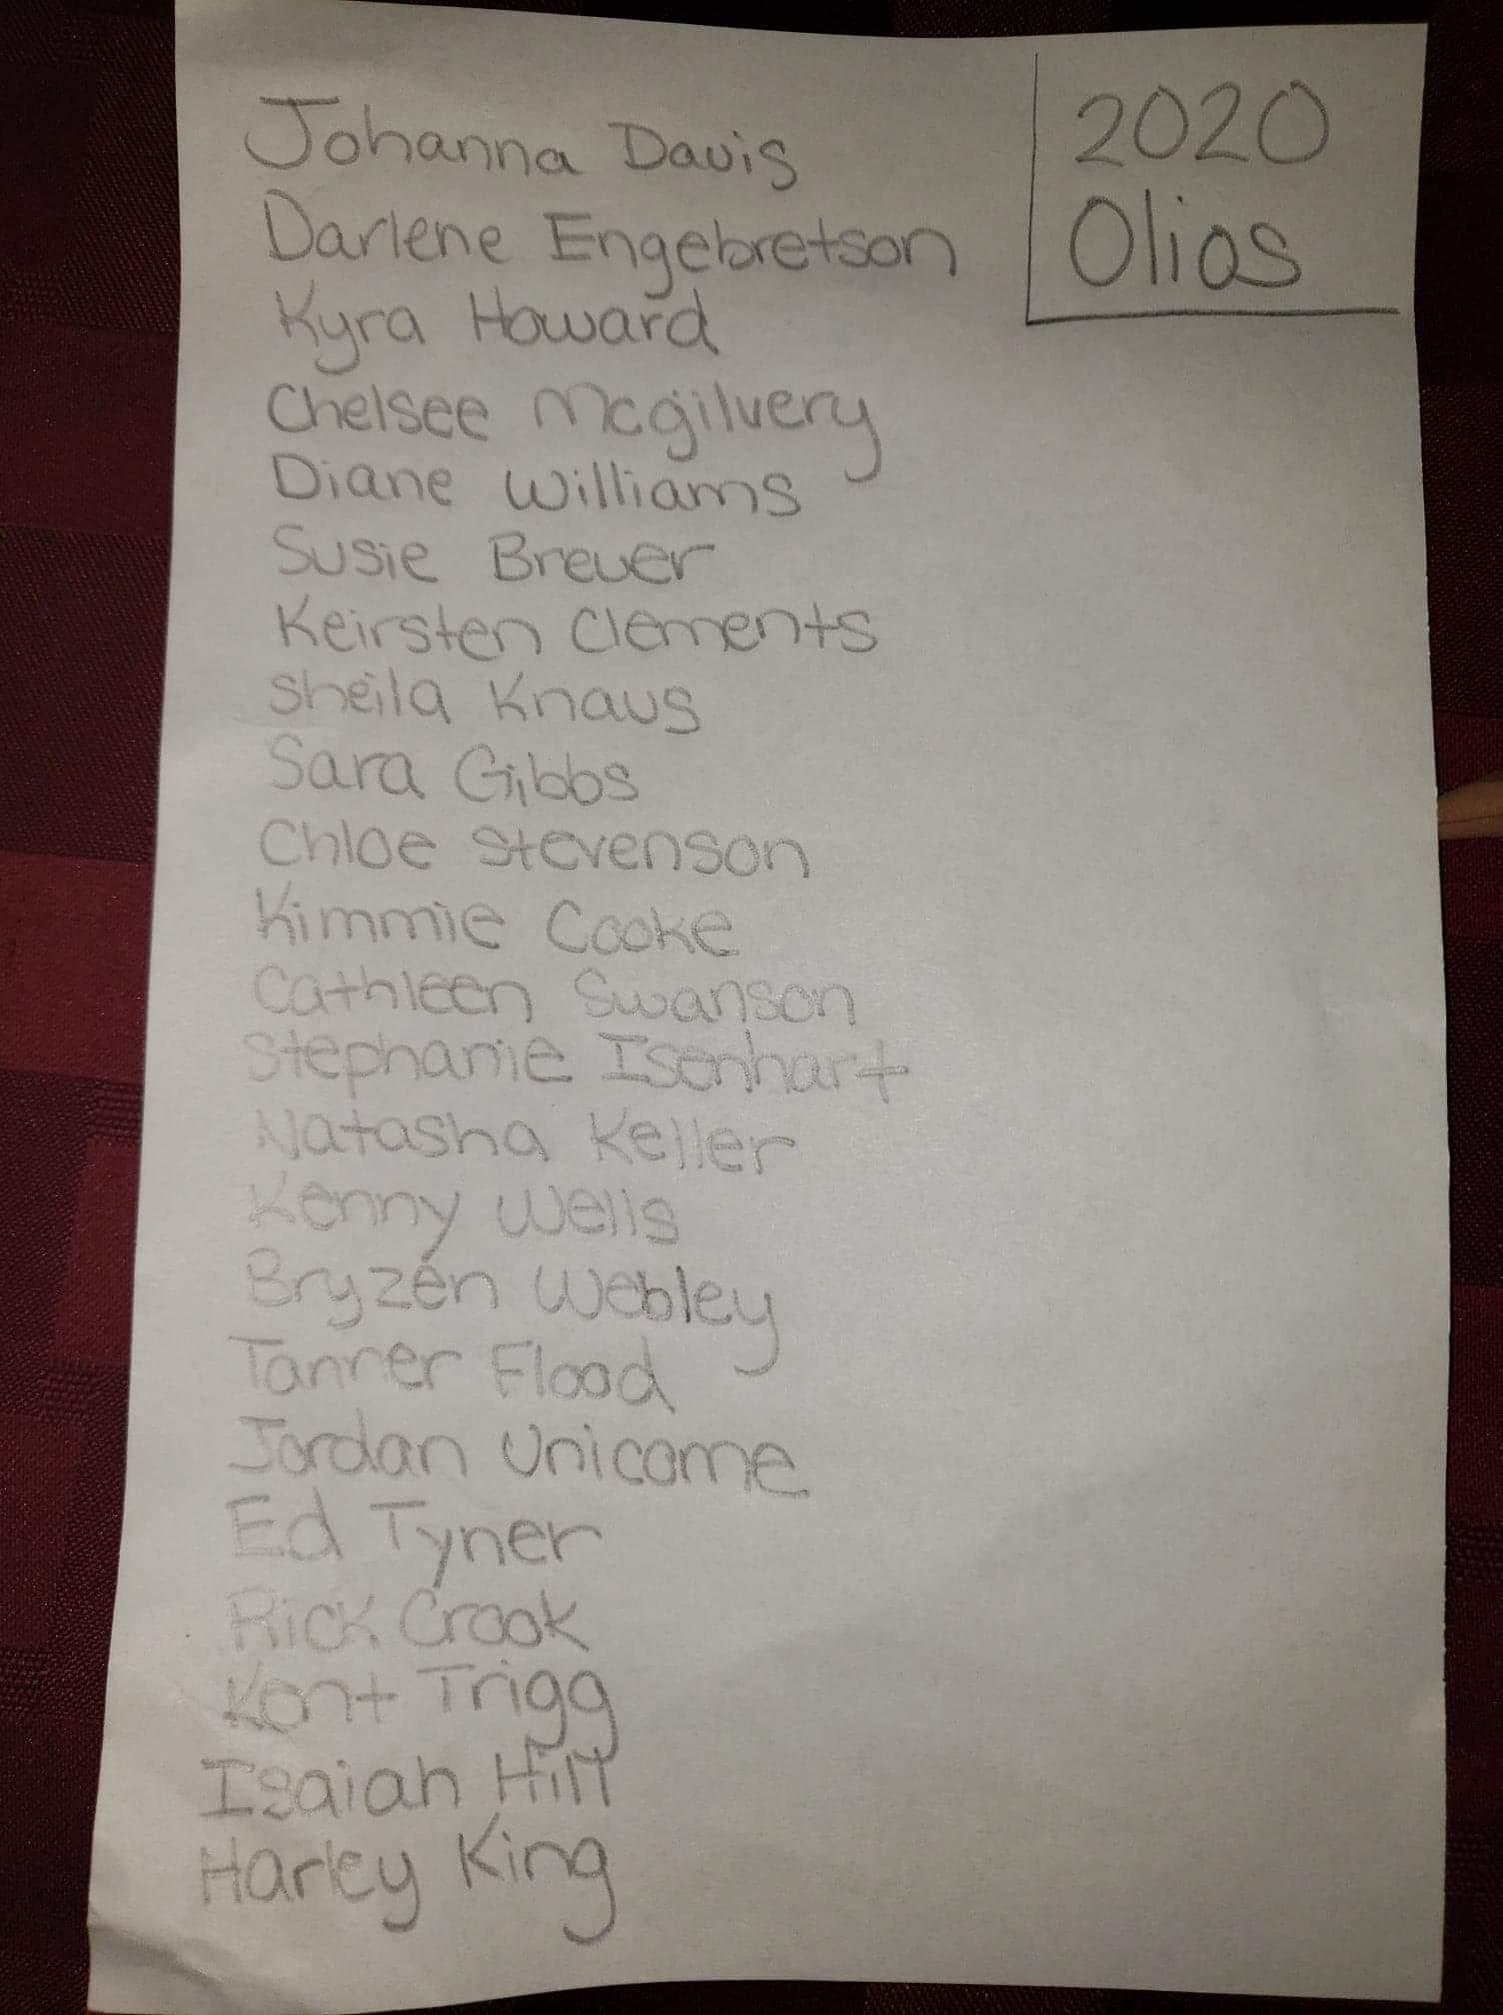 2020
Olios
Johanna Davis
Darlene Engebretson
Kyra Howard
Chelsee Mcgilvery
Diane Williams
Susie Breuer
Keirsten Clements
Sheila Knaus
Sara Gibbs
Chloe Stevenson
Kimmie Cooke
Cathleen Swanson
Stephanie Isenhart
Natasha Keller
Kenny Wells
Bryzen Webley
Tanner Flood
Jordan Unicome
Ed Tyner
Rick Crook
Kont Trigg
Isaiah Hill
Harley King